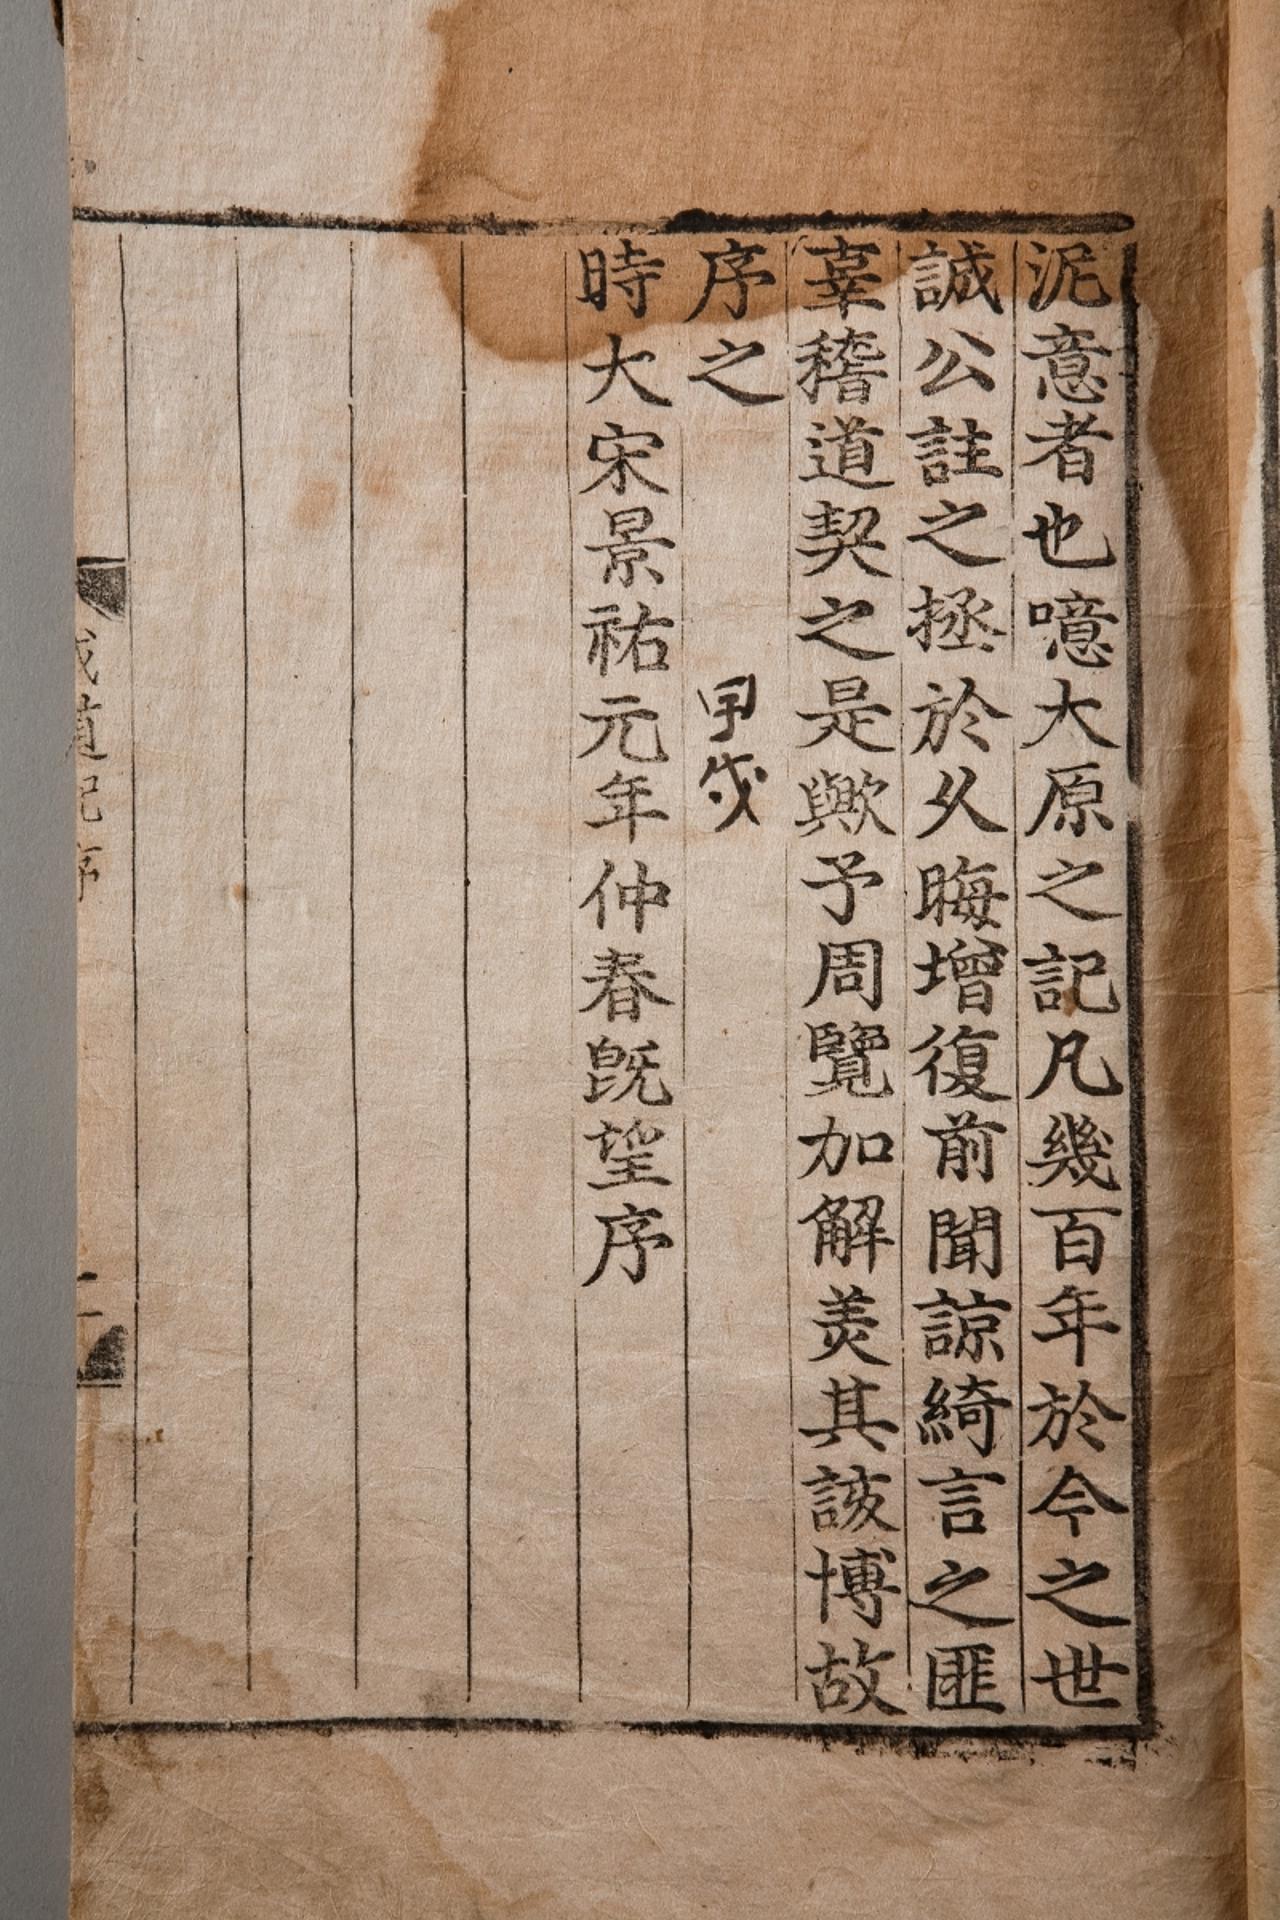 泥意者也噫大原之記凡幾百年於今之世
誠公註之拯於乆晦增復前聞諒綺言之匪
辜稽道契之是歟予周覽加解羙其該博故
序之
時大宋景祐元年仲春既望序
成道記序
二